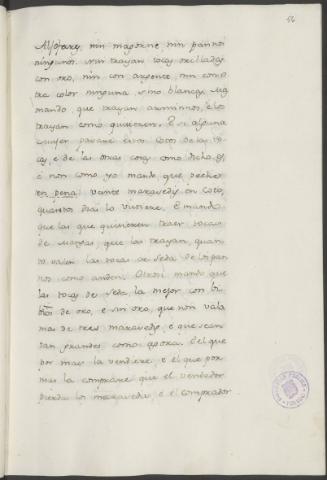 56
Aljofares, nin margome nin pannos
ningunos, nin trayan tocas orelladas
con oro, nin con argente, nin con o
tra color ninguna, sino blancas. Ma
mando, que trayan arminnos, e lo
trayan como quisieren. E si alguna
muger pasare estos cotos de las to
cas, e de las otras cosas como dicho es,
e non como yo mando que peche
en pena veinte maravedis en coto,
quantos dias lo vistiere. E mando
que las que quisieren traer tocas
de que las trayan, quan
to valen las tocas de seda de los pan
nos como anden. Otrosi mando que
las tocas de seda la mejor con li
bros de oro, e sin oro, que non vala
mas de tres maravedis, e que sean
tan grandes como agora. E el que
por mas la vendiere, e el que por
mas la comprare que el vendedor
pierda los maravedis, e el comprador